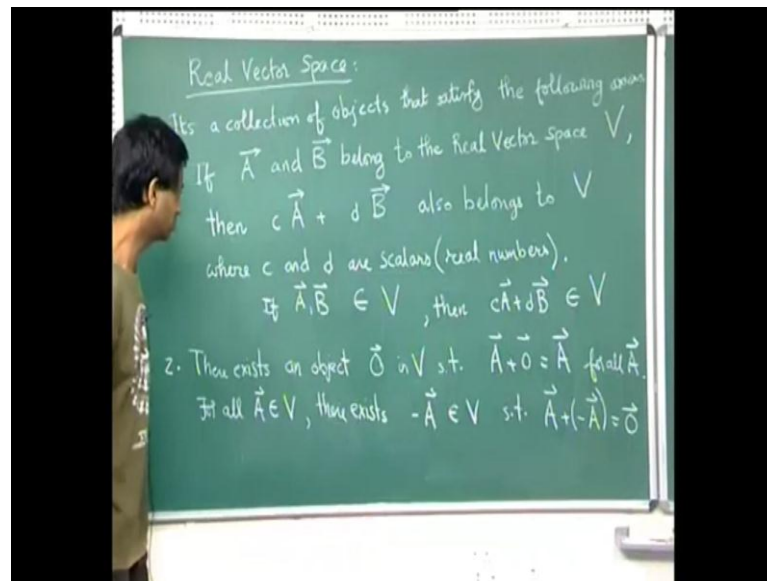 Real Vector Space:
It's a collection of objects that satisfy the following axioms
If A⃗ and B⃗ belong to the Real Vector Space V,
then c A⃗ + d B⃗ also belongs to V
where c and d are scalars (real numbers).
If A⃗, B⃗ ∈ V, then cA⃗+dB⃗ ∈ V
2. There exists an object 0⃗ in V s.t. A⃗+0⃗ = A⃗ for all A⃗.
For all A⃗ ∈ V, there exists -A⃗ ∈ V s.t. A⃗+(-A⃗)=0⃗